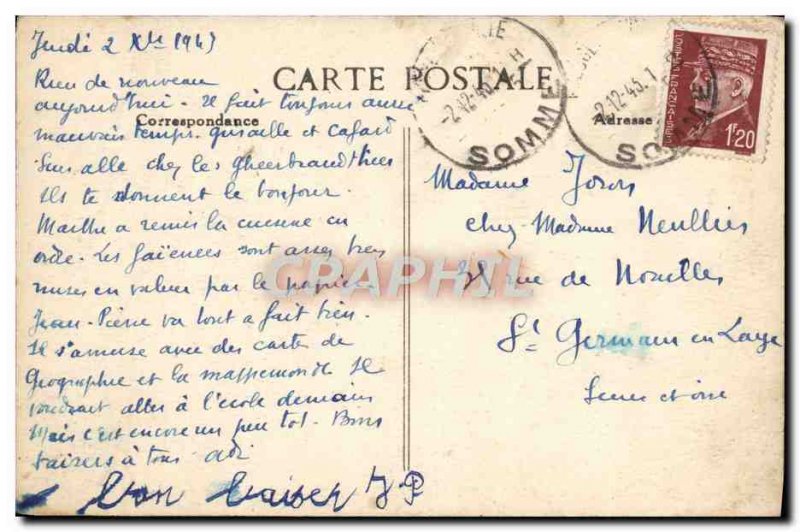 Jeudi 2 Xbre 1943
Rien de nouveau
aujourd'hui. Il fait toujours aussi
mauvais temps. grisaille et cafard
suis allé chez les
Ils te donnent le bonjour.
Marthe a remis la cuisine en
ordre. Les faïences sont assez bien
mises en valeur par le papier
Jean-Pierre va tout a fait bien.
Il s'amuse avec des cartes de
Geographie et la mappemonde Il
voudrait aller à l'école demain
Mais c'est encore un peu tot. Bons
baisers à tous
bon baiser JP
CARTE POSTALE
Correspondance
Adresse
SOMME
2-12-43
SOMME
2-12-43
1F20
Madame
chez Madame
rue de Noailles
St Germain en Laye
Seine et oise
CRAPHIL